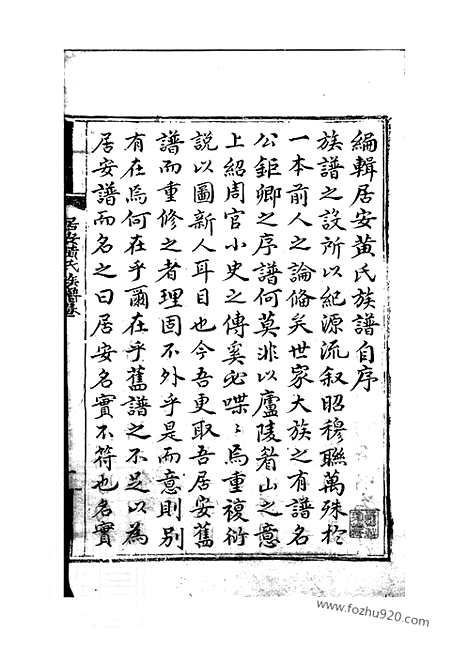 編輯居安黃氏族譜自序
族譜之設所以紀源流叙昭穆聯萬殊於
一本前人之論俻矣世家大族之有譜名
公鉅卿之序譜何莫非以廬陵眉山之意
上紹周官小史之傳奚必喋〻焉重複衍
說以圖新人耳目也今吾更取吾居安舊
譜而重修之者理固不外乎是而意則別
有在焉何在乎爾在乎舊譜之不足以為
居安譜而名之曰居安名實不符也名實
居安黃氏族譜
www.fozhu920.com